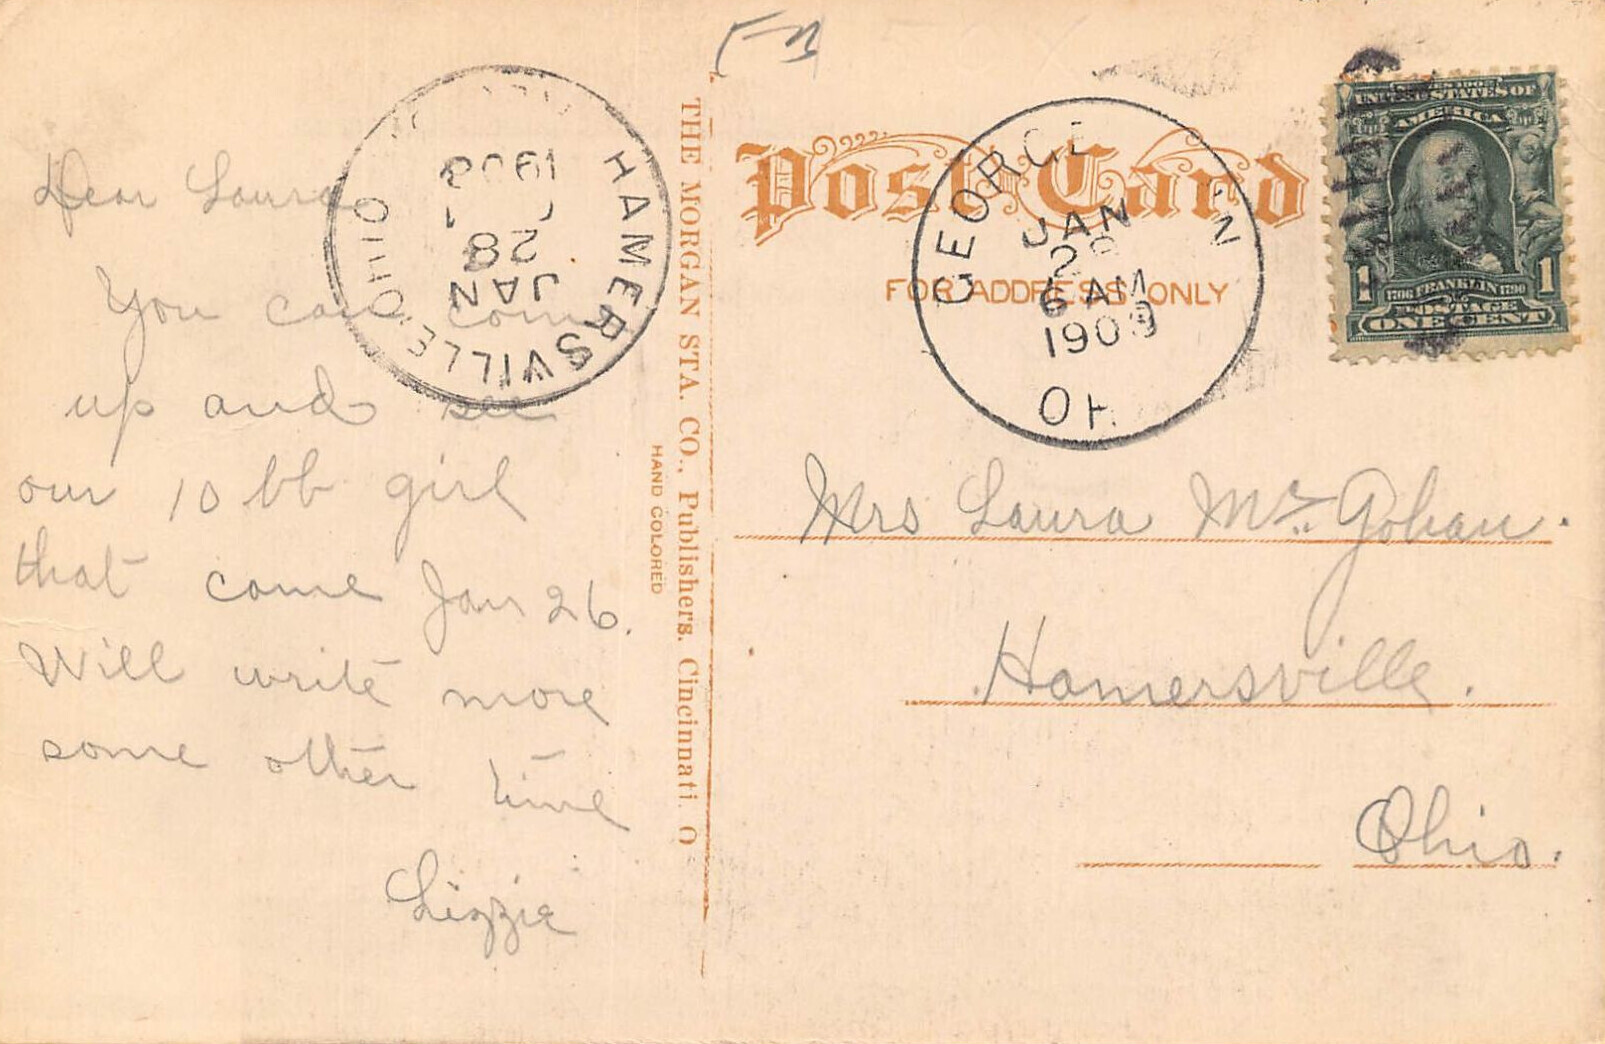 Dear Laura
You can come
up and see
our 10 lb girl
that come Jan 26.
Will write more
some other time
Lizzie
HAMERSVILLE, OHIO
JAN
28
1908
THE MORGAN STA. CO., Publishers. Cincinnati. O
HAND COLORED
Post Card
FOR ADDRESS ONLY
JAN
6 AM
1909
OH
SERIES 1902
UNITED STATES OF
AMERICA
1 1706 FRANKLIN 1790 1
POSTAGE
ONE CENT
Mrs Laura Mc Gohan.
Hamersville.
Ohio.